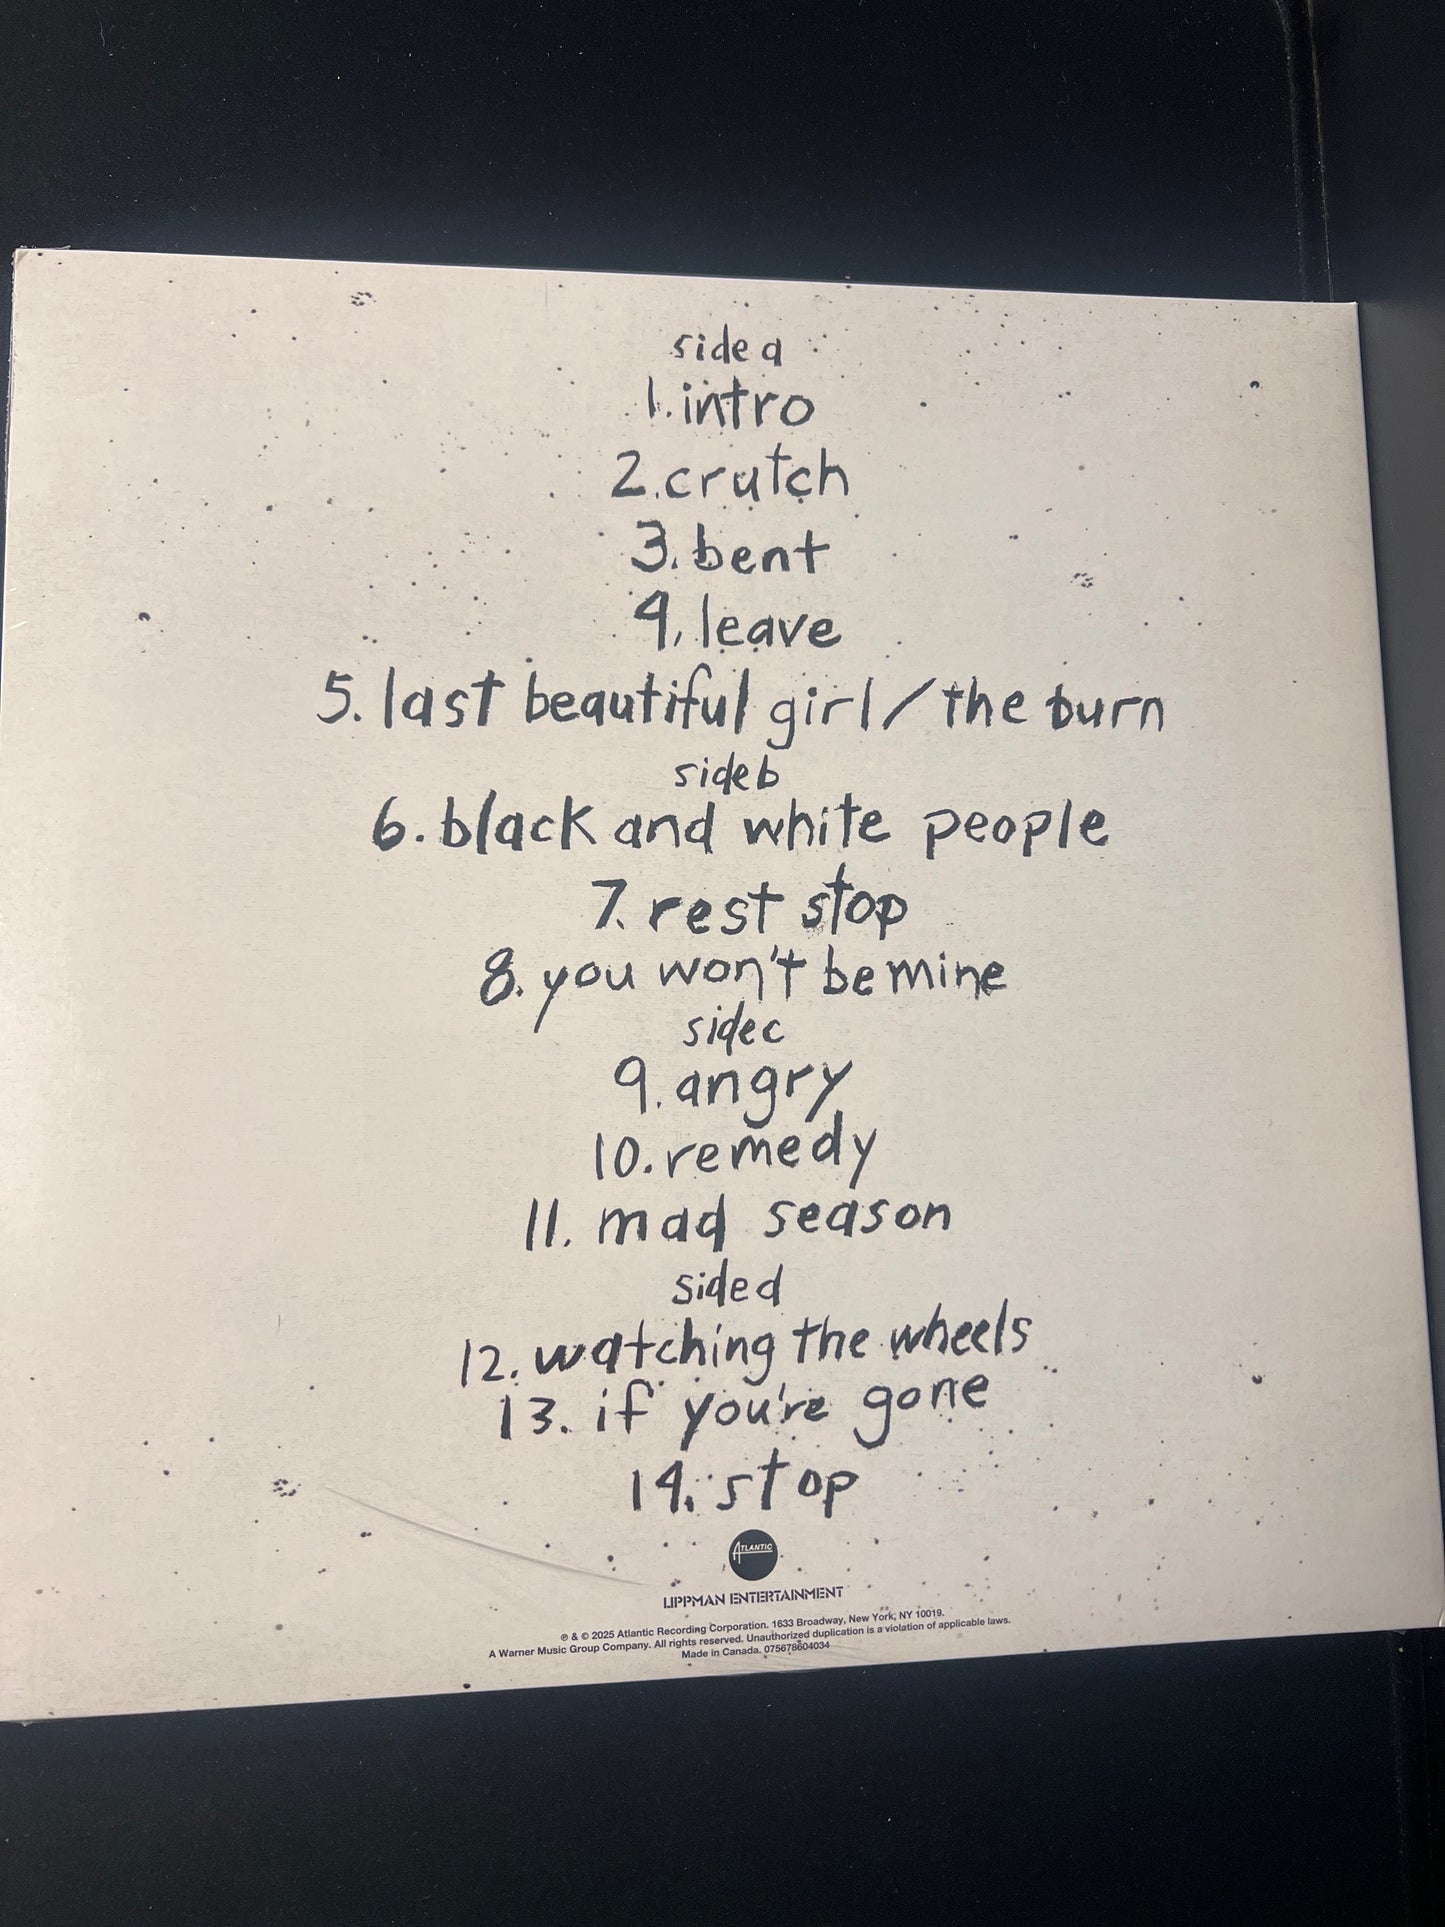 side a
1. intro
2. crutch
3. bent
4. leave
5. last beautiful girl / the burn
side b
6. black and white people
7. rest stop
8. you won't be mine
side c
9. angry
10. remedy
11. mad season
side d
12. watching the wheels
13. if you're gone
14. stop
ATLANTIC
LIPPMAN ENTERTAINMENT
℗ & © 2025 Atlantic Recording Corporation. 1633 Broadway, New York, NY 10019.
A Warner Music Group Company. All rights reserved. Unauthorized duplication is a violation of applicable laws.
Made in Canada. 075678604034